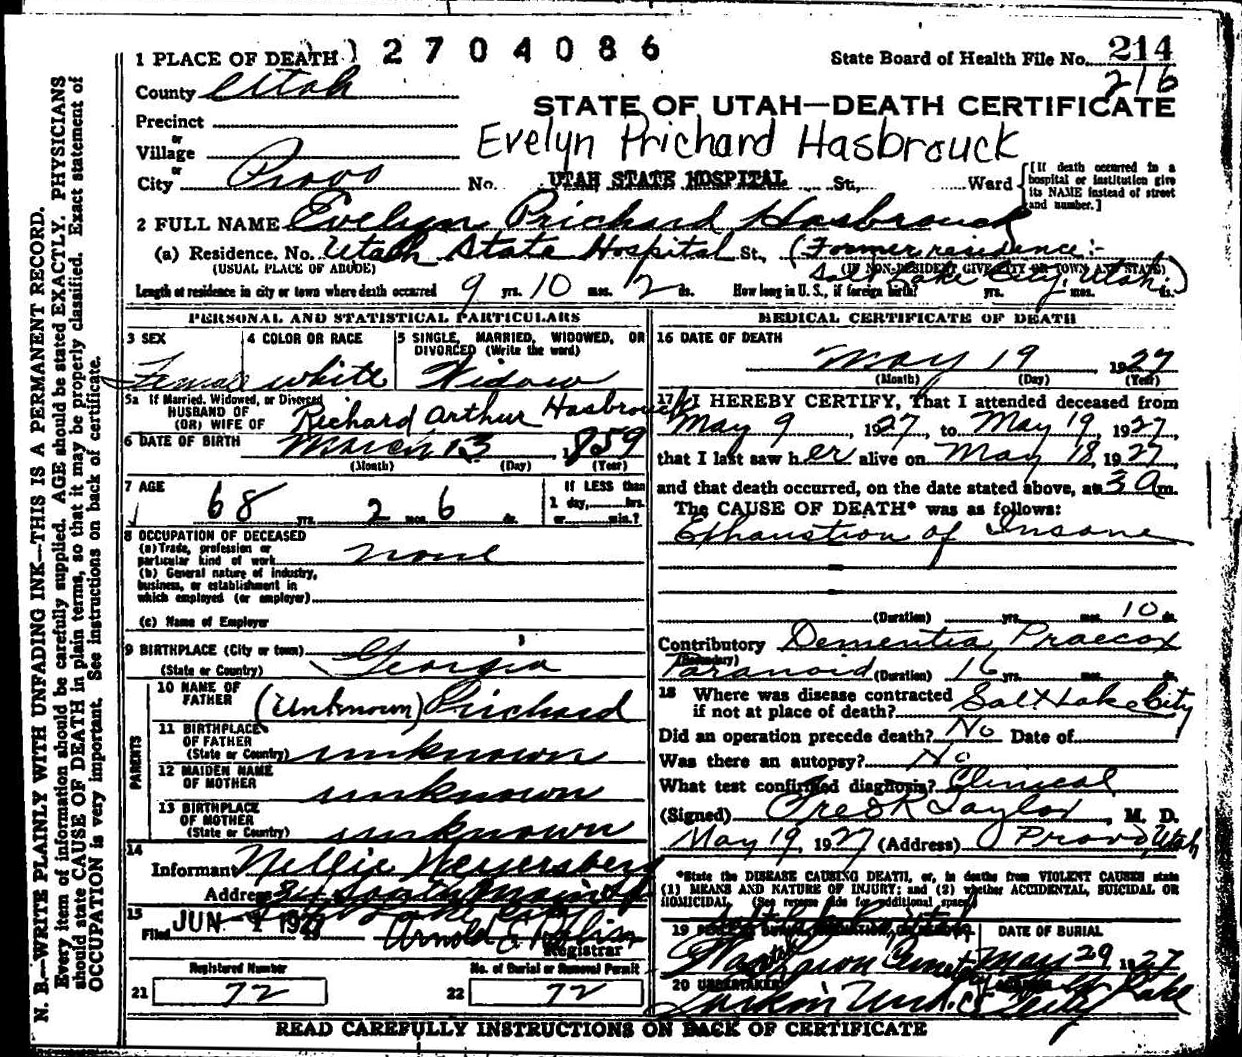 1 PLACE OF DEATH 2704086 State Board of Health File No. 214
County Utah 216
STATE OF UTAH—DEATH CERTIFICATE
Precinct
or
Village
Evelyn Prichard Hasbrouck
or
City Provo No. UTAH STATE HOSPITAL St., Ward
[If death occurred in a hospital or institution give its NAME instead of street and number.]
2 FULL NAME Evelyn Prichard Hasbrouck
(a) Residence. No. Utah State Hospital St., (Former residence:-
(USUAL PLACE OF ABODE) (IF NON-RESIDENT GIVE CITY OR TOWN AND STATE)
Salt Lake City, Utah.)
Length of residence in city or town where death occurred 9 yrs. 10 mos. 12 ds. How long in U. S., if foreign birth? yrs. mos. ds.
PERSONAL AND STATISTICAL PARTICULARS
3 SEX
Female
4 COLOR OR RACE
white
5 SINGLE, MARRIED, WIDOWED, OR DIVORCED (Write the word)
Widow
5a If Married, Widowed, or Divorced
HUSBAND OF
(OR) WIFE OF Richard Arthur Hasbrouck
6 DATE OF BIRTH March 13, 1859
(Month) (Day) (Year)
7 AGE
68 yrs. 2 mos. 6 ds.
If LESS than
1 day, hrs.
or min.?
8 OCCUPATION OF DECEASED
(a) Trade, profession or
particular kind of work none
(b) General nature of industry,
business, or establishment in
which employed (or employer)
(c) Name of Employer
9 BIRTHPLACE (City or town)
(State or Country) Georgia
PARENTS
10 NAME OF
FATHER (Unknown) Prichard
11 BIRTHPLACE
OF FATHER
(State or Country) unknown
12 MAIDEN NAME
OF MOTHER unknown
13 BIRTHPLACE
OF MOTHER
(State or Country) unknown
14
Informant Nellie Weyersberg
Address 34 South Main St
15
Filed JUN 1 1927 Arnold E.
Registrar
Registered Number
21 72
No. of Burial or Removal Permit
22 72
MEDICAL CERTIFICATE OF DEATH
16 DATE OF DEATH
May 19 1927
(Month) (Day) (Year)
17 I HEREBY CERTIFY, that I attended deceased from
May 9, 1927, to May 19, 1927,
that I last saw her alive on May 18, 1927,
and that death occurred, on the date stated above, at 3 a m.
The CAUSE OF DEATH* was as follows:
Exhaustion of Insane
(Duration) yrs. mos. 10 ds.
Contributory Dementia Praecox
(Secondary)
Paranoid (Duration) 16 yrs. mos. ds.
18 Where was disease contracted
if not at place of death? Salt Lake City
Did an operation precede death? No Date of
Was there an autopsy? No
What test confirmed diagnosis? Clinical
(Signed) Fred R Taylor, M. D.
May 19, 1927 (Address) Provo, Utah
*State the DISEASE CAUSING DEATH, or, in deaths from VIOLENT CAUSES state
(1) MEANS AND NATURE OF INJURY; and (2) whether ACCIDENTAL, SUICIDAL OR
HOMICIDAL. (See reverse side for additional space)
19 PLACE OF BURIAL, CREMATION, OR REMOVAL
DATE OF BURIAL
May 29, 1927
20 UNDERTAKER ADDRESS
Larkin Und. Co Lake
City
READ CAREFULLY INSTRUCTIONS ON BACK OF CERTIFICATE
N. B.—WRITE PLAINLY WITH UNFADING INK—THIS IS A PERMANENT RECORD.
Every item of information should be carefully supplied. AGE should be stated EXACTLY. PHYSICIANS
should state CAUSE OF DEATH in plain terms, so that it may be properly classified. Exact statement of
OCCUPATION is very important. See instructions on back of certificate.